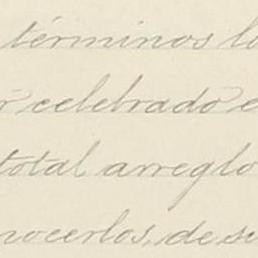 términos lo
r celebrado e
total arreglo
nocerlos, de su